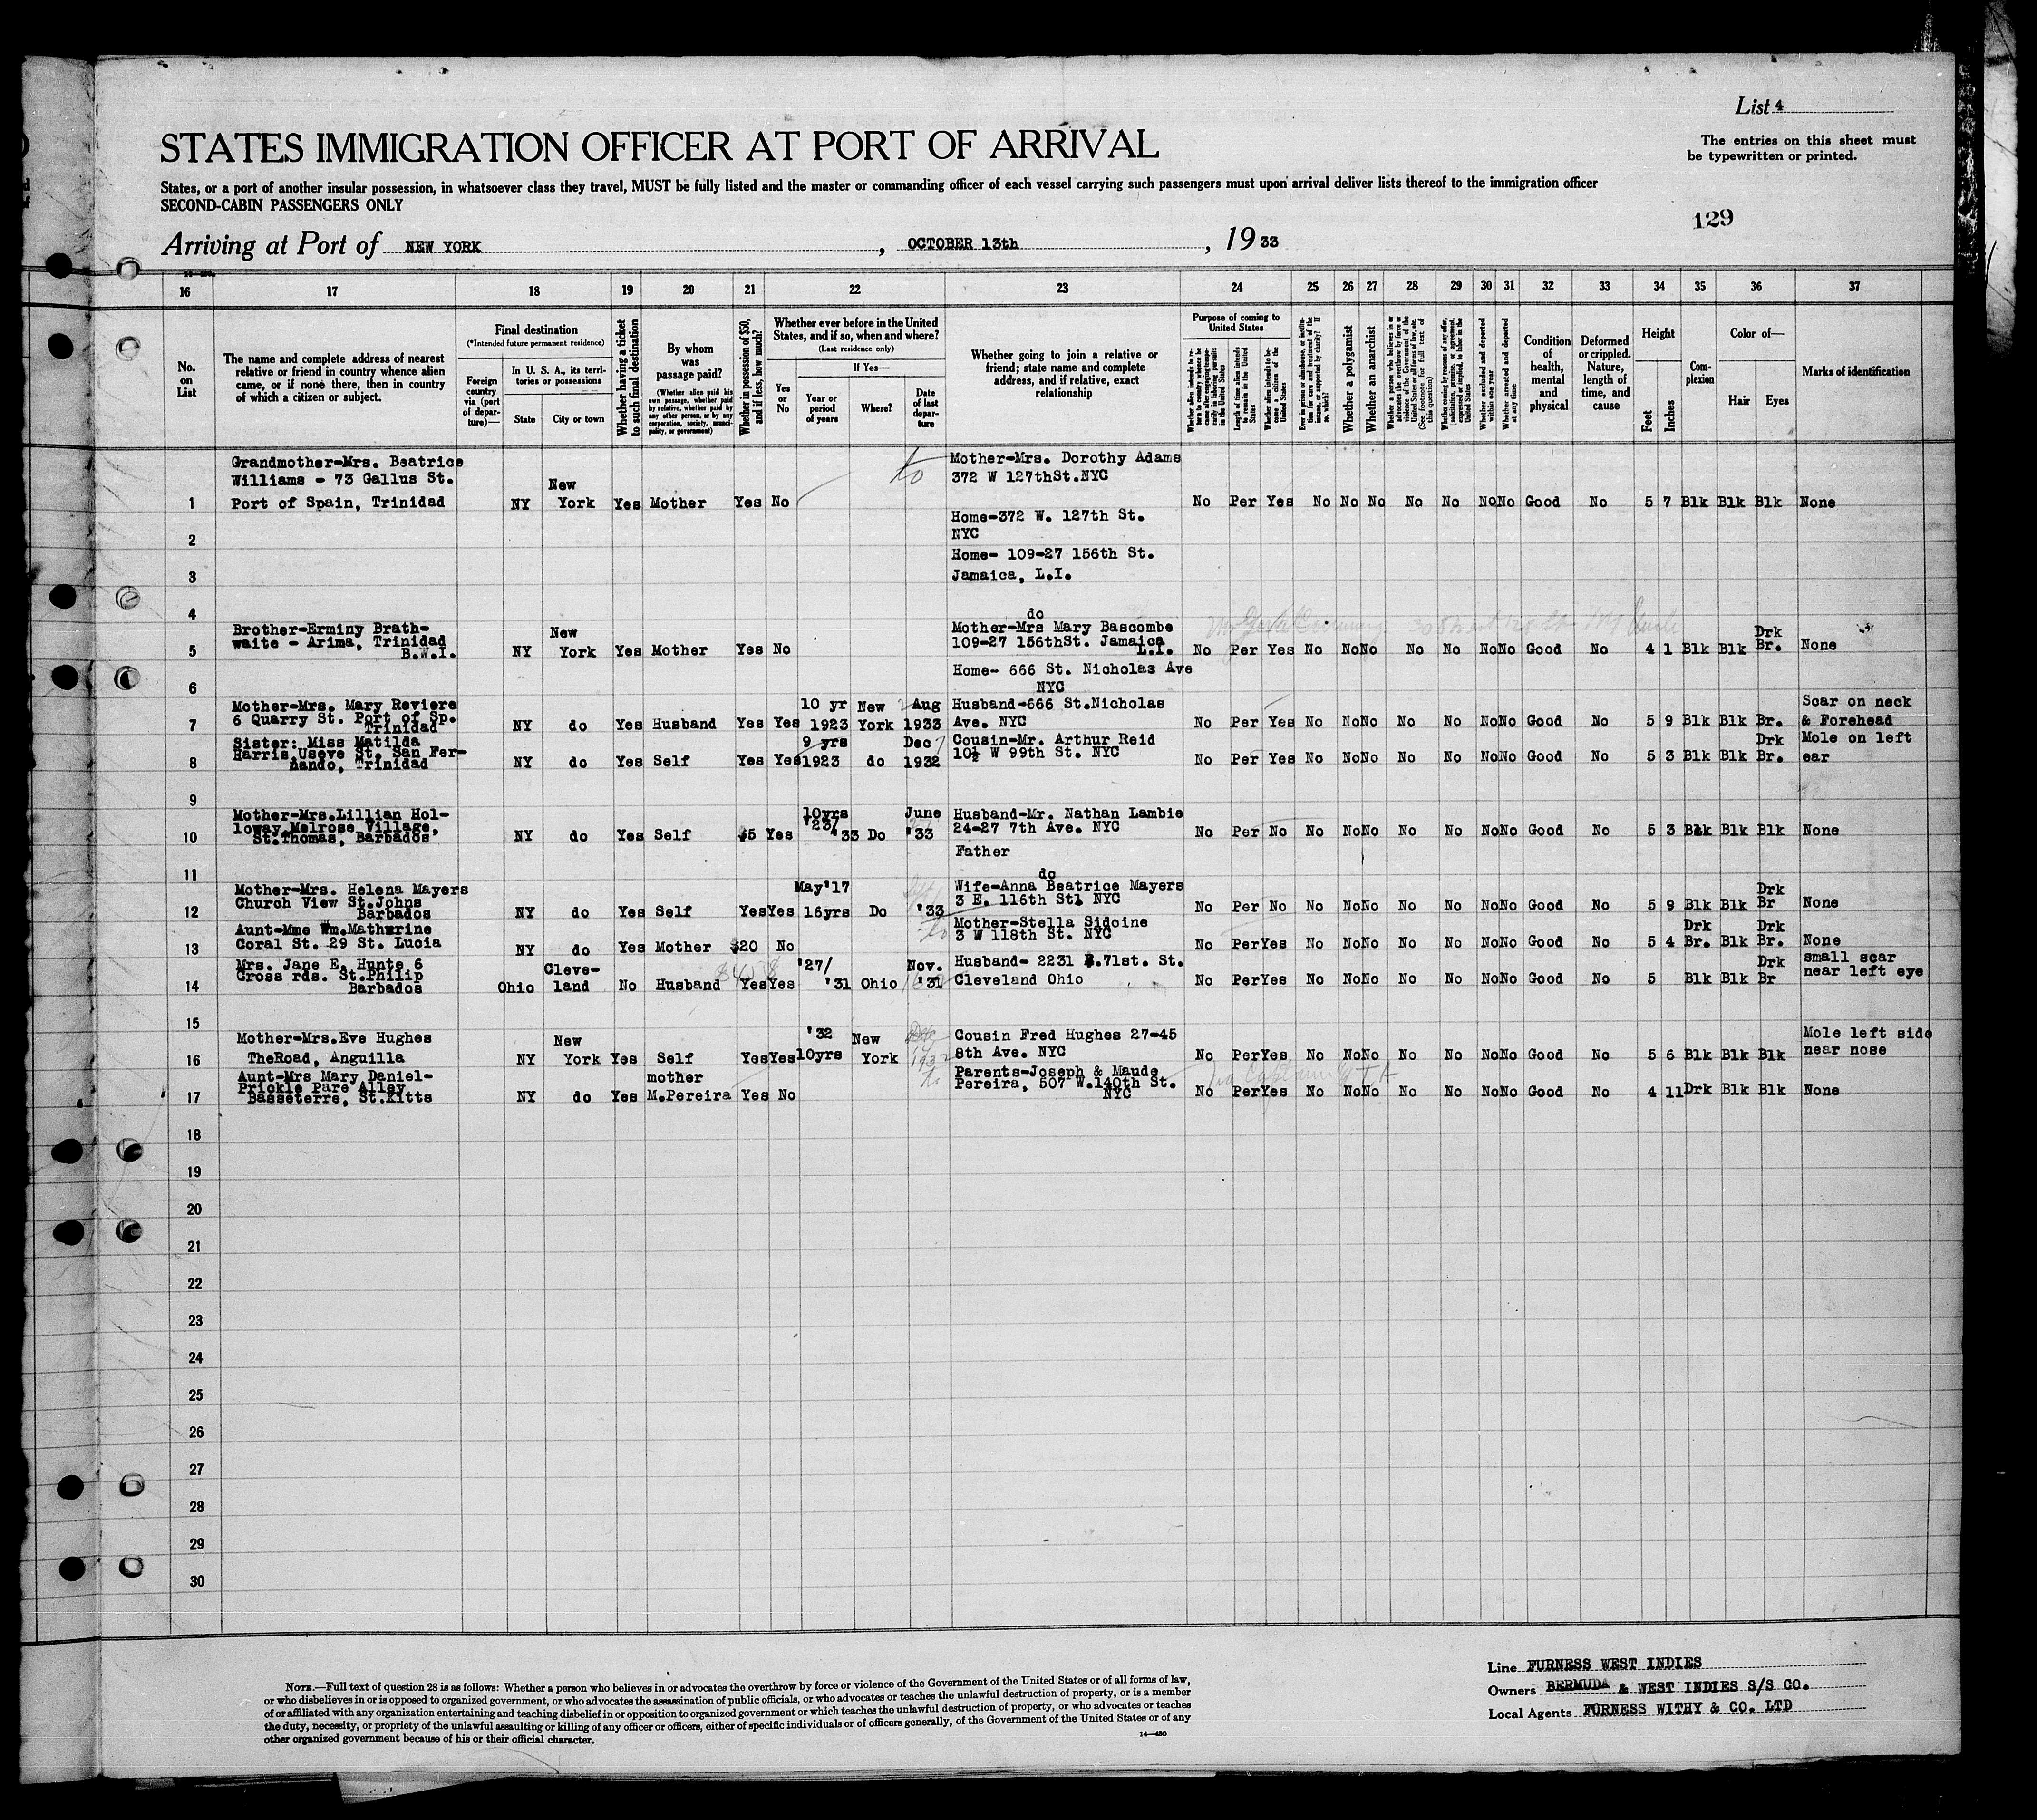 List 4
STATES IMMIGRATION OFFICER AT PORT OF ARRIVAL
The entries on this sheet must
be typewritten or printed.
States, or a port of another insular possession, in whatsoever class they travel, MUST be fully listed and the master or commanding officer of each vessel carrying such passengers must upon arrival deliver lists thereof to the immigration officer
SECOND-CABIN PASSENGERS ONLY
129
Arriving at Port of NEW YORK, OCTOBER 13th, 1933
16 17 18 19 20 21 22 23 24 25 26 27 28 29 30 31 32 33 34 35 36 37
No.
on
List
The name and complete address of nearest
relative or friend in country whence alien
came, or if none there, then in country
of which a citizen or subject.
Final destination
(*Intended future permanent residence)
Foreign
country
via (port
of depar-
ture)—
In U. S. A., its terri-
tories or possessions
State
City or town
Whether having a ticket
to such final destination
By whom
was
passage paid?
(Whether alien paid his
own passage, whether paid
by relative, whether paid by
any other person, or by any
corporation, society, munici-
pality, or government)
Whether in possession of $50,
and if less, how much?
Whether ever before in the United
States, and if so, when and where?
(Last residence only)
Yes
or
No
If Yes—
Year or
period
of years
Where?
Date
of last
depar-
ture
Whether going to join a relative or
friend; state name and complete
address, and if relative, exact
relationship
Purpose of coming to
United States
Length of time alien intends
to remain in the United
States
Whether alien intends to be-
come a citizen of the
United States
Whether a polygamist
Whether an anarchist
Whether excluded and deported
within one year
Whether arrested and deported
at any time
Condition
of
health,
mental
and
physical
Deformed
or crippled.
Nature,
length of
time, and
cause
Height
Feet
Inches
Com-
plexion
Color of—
Hair
Eyes
Marks of identification
Grandmother-Mrs. Beatrice
Williams - 73 Gallus St.
Mother-Mrs. Dorothy Adams
372 W 127thSt.NYC
New
1 Port of Spain, Trinidad NY York Yes Mother Yes No No Per Yes No No No No No No No Good No 5 7 Blk Blk Blk None
Home-372 W. 127th St.
2 NYC
Home- 109-27 156th St.
3 Jamaica, L.I.
4 do
Brother-Erminy Brath-
New
Mother-Mrs Mary Bascombe
Drk
waite - Arima, Trinidad
109-27 156thSt. Jamaica
5 B.W.I. NY York Yes Mother Yes No L.I. No Per Yes No No No No No No No Good No 4 1 Blk Blk Br. None
Home- 666 St. Nicholas Ave
6 NYC
Mother-Mrs. Mary Reviere
10 yr New Aug
Husband-666 St.Nicholas
Scar on neck
6 Quarry St. Port of Sp.
7 Trinidad NY do Yes Husband Yes Yes 1923 York 1933 Ave. NYC No Per Yes No No No No No No No Good No 5 9 Blk Blk Br. & Forehead
Sister: Miss Matilda
9 yrs Dec
Cousin-Mr. Arthur Reid
Drk Mole on left
Harris Useve St. San Fer-
10½ W 99th St. NYC
8 nando, Trinidad NY do Yes Self Yes Yes 1923 do 1932 No Per Yes No No No No No No No Good No 5 3 Blk Blk Br. ear
9
Mother-Mrs.Lillian Hol-
10yrs June
Husband-Mr. Nathan Lambie
loway Melrose Village,
'23/
24-27 7th Ave. NYC
10 St.Thomas, Barbados NY do Yes Self $5 Yes '33 Do '33 No Per No No No No No No No No Good No 5 3 Blk Blk Blk None
Father
11 do
Mother-Mrs. Helena Mayers
May'17
Wife-Anna Beatrice Mayers
Drk
Church View St.Johns
3 E. 116th St. NYC
12 Barbados NY do Yes Self Yes Yes 16yrs Do '33 No Per No No No No No No No No Good No 5 9 Blk Blk Br None
Aunt-Mme Wm.Mathurine
Mother-Stella Sidoine
Drk Drk
3 W 118th St. NYC
13 Coral St. 29 St. Lucia NY do Yes Mother $20 No No Per Yes No No No No No No No Good No 5 4 Br. Blk Br. None
Mrs. Jane E. Hunte 6
Cleve-
'27/ Nov.
Husband- 2231 E.71st. St.
Drk small scar
Cross rds. St.Philip
near left eye
14 Barbados Ohio land No Husband Yes Yes '31 Ohio '31 Cleveland Ohio No Per Yes No No No No No No No Good No 5 Blk Blk Br
15
Mother-Mrs.Eve Hughes
New
'32 New
Cousin Fred Hughes 27-45
Mole left side
16 TheRoad, Anguilla NY York Yes Self Yes Yes 10yrs York 8th Ave. NYC No Per Yes No No No No No No No Good No 5 6 Blk Blk Blk near nose
Aunt-Mrs Mary Daniel-
mother
Parents-Joseph & Maude
Prickle Pare Alley
Pereira, 507 W.140th St.
17 Basseterre, St.Kitts NY do Yes M.Pereira Yes No NYC No Per Yes No No No No No No No Good No 4 11 Drk Blk Blk None
18
19
20
21
22
23
24
25
26
27
28
29
30
NOTE.—Full text of question 28 is as follows: Whether a person who believes in or advocates the overthrow by force or violence of the Government of the United States or of all forms of law,
or who disbelieves in or is opposed to organized government, or who advocates the assassination of public officials, or who advocates or teaches the unlawful destruction of property, or is a member
of or affiliated with any organization entertaining and teaching disbelief in or opposition to organized government or which teaches the unlawful destruction of property, or who advocates or teaches
the duty, necessity, or propriety of the unlawful assaulting or killing of any officer or officers, either of specific individuals or of officers generally, of the Government of the United States or of any
other organized government because of his or their official character.
14—430
Line FURNESS WEST INDIES
Owners BERMUDA & WEST INDIES S/S CO.
Local Agents FURNESS WITHY & CO. LTD